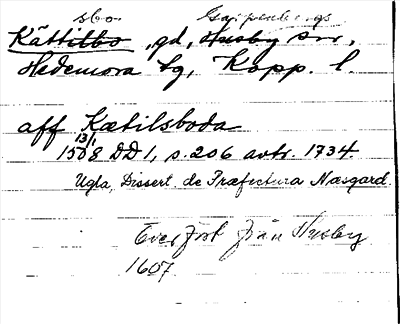 sbo Garpenbergs
Kättilbo, gd, Husby sn,
Hedemora tg, Kopp. l.
aff Kætilsboda
13/1
1508 DD 1, s. 206 avtr. 1734.
Ugla, Dissert. de Præfectura Næsgard.
Överfört från Husby
1607